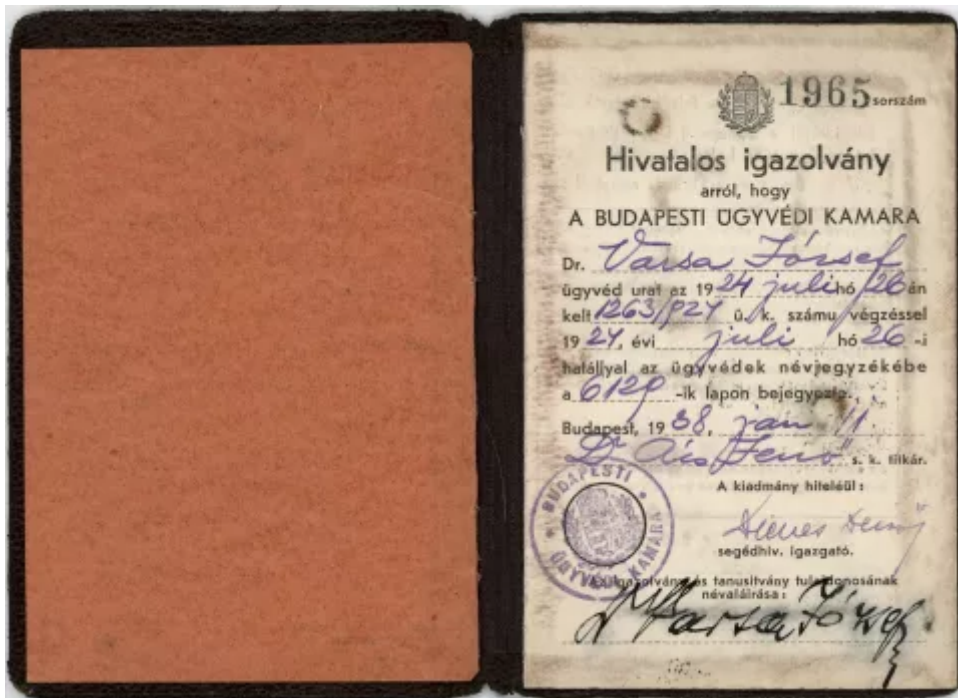 1965 sorszám
Hivatalos igazolvány
arról, hogy
A BUDAPESTI ÜGYVÉDI KAMARA
Dr. Varsa József
ügyvéd urat az 1924 juli hó 26 án
kelt 1263/924 ü. k. számu végzéssel
1924, évi juli hó 26 -i
hatállyal az ügyvédek névjegyzékébe
a 6129 -ik lapon bejegyezte.
Budapest, 1938, jan 11.
Dr Jenő s. k. titkár.
A kiadmány hiteléül:
Dienes
segédhiv. igazgató.
BUDAPESTI ÜGYVÉDI KAMARA
Az igazolvány és tanusitvány tulajdonosának
névaláírása:
Dr Varsa József